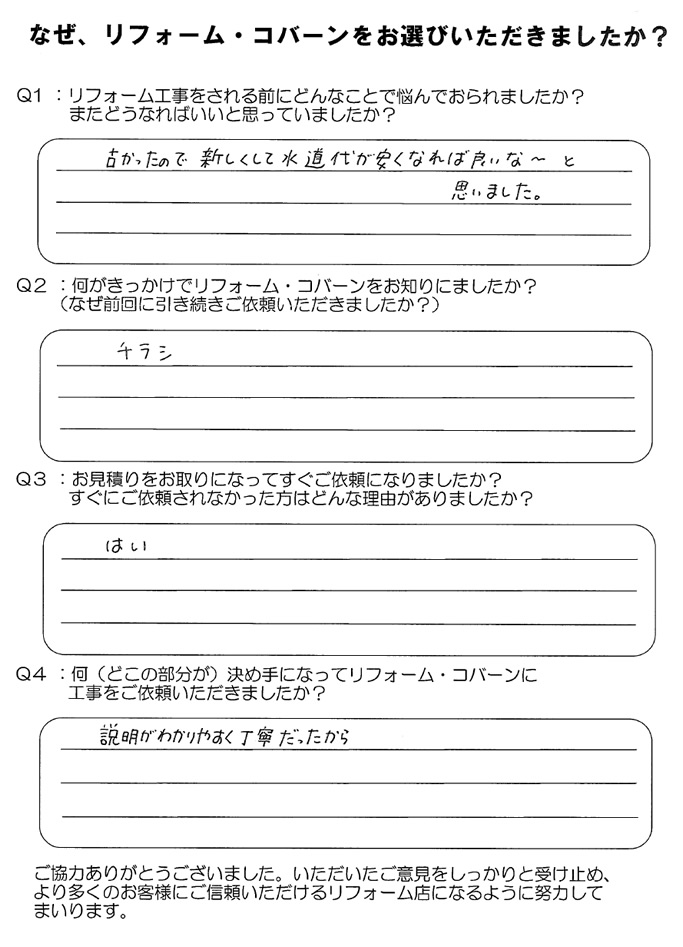 なぜ、リフォーム・コバーンをお選びいただきましたか？
Q1 ：リフォーム工事をされる前にどんなことで悩んでおられましたか？
またどうなればいいと思っていましたか？
古かったので 新しくして水道代が安くなれば良いな～ と
思いました。
Q2 ：何がきっかけでリフォーム・コバーンをお知りにましたか？
（なぜ前回に引き続きご依頼いただきましたか？）
チラシ
Q3 ：お見積りをお取りになってすぐご依頼になりましたか？
すぐにご依頼されなかった方はどんな理由がありましたか？
はい
Q4 ：何（どこの部分が）決め手になってリフォーム・コバーンに
工事をご依頼いただきましたか？
説明がわかりやすく丁寧だったから
ご協力ありがとうございました。いただいたご意見をしっかりと受け止め、
より多くのお客様にご信頼いただけるリフォーム店になるように努力して
まいります。